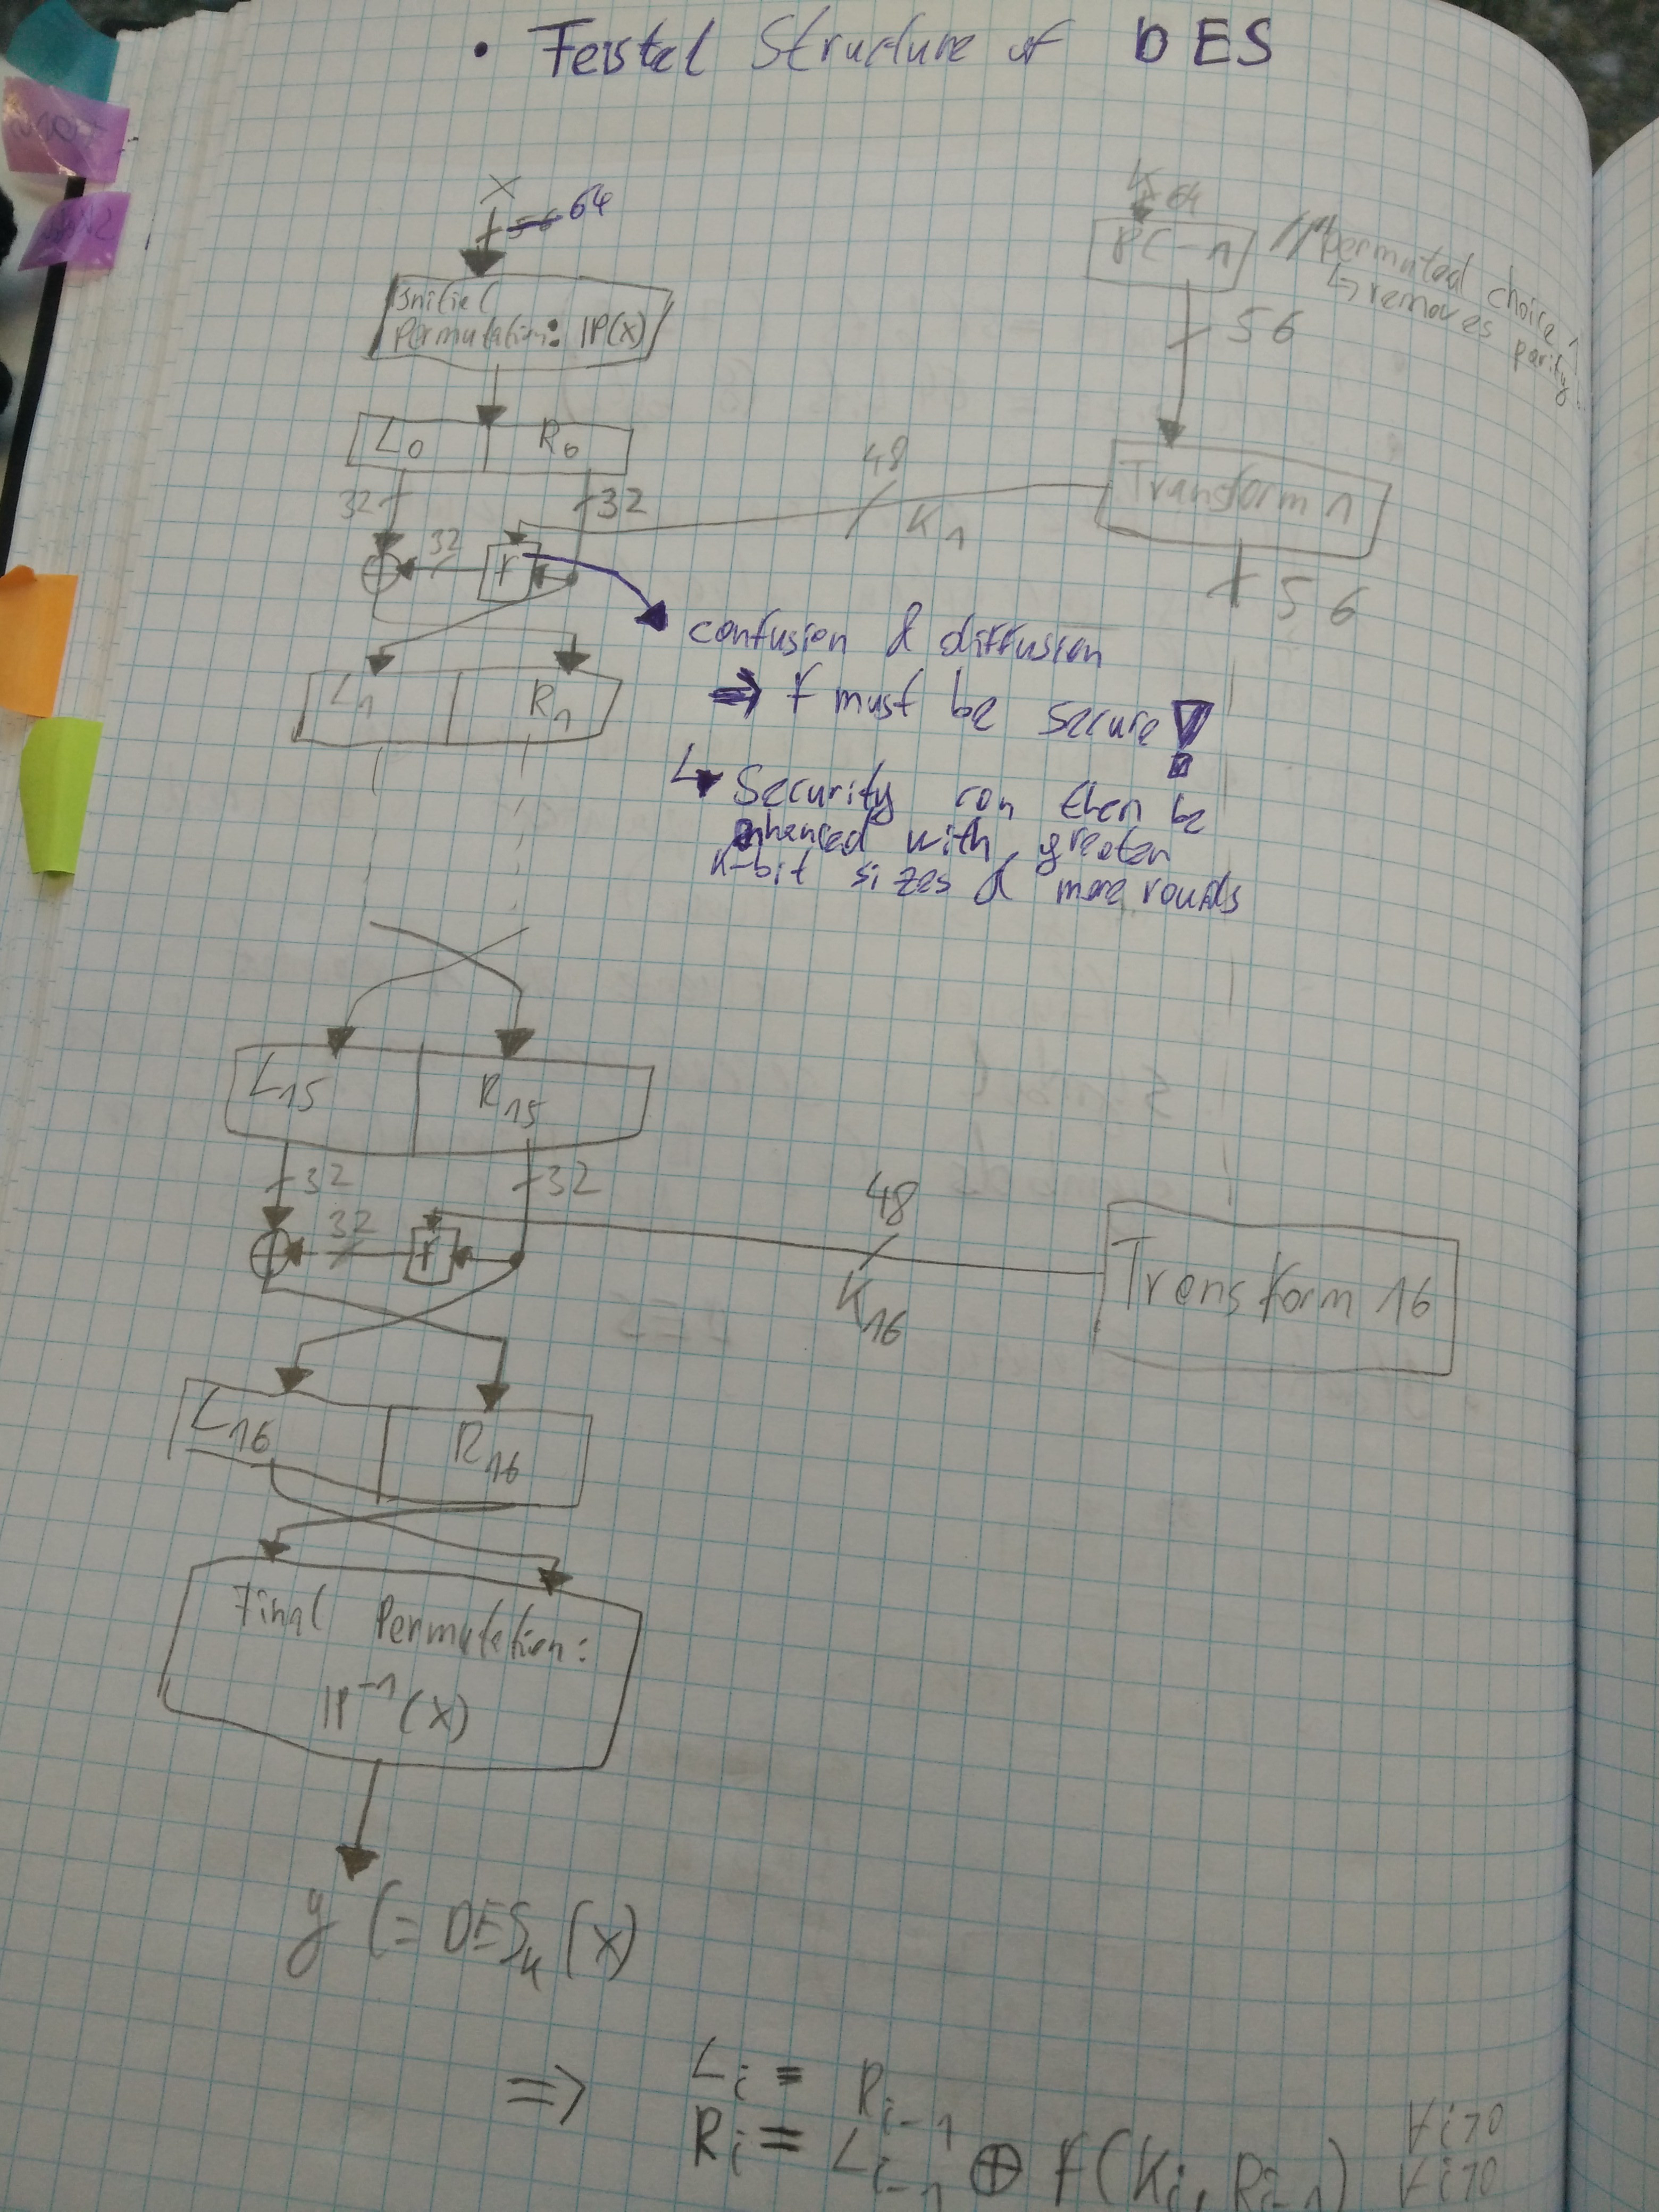 • Feistel Structure of DES
X
56 64
Initial
Permutation: IP(X)
K
64
PC-1
// permuted choice 1
↳ removes parity
56
L0 R0
32
32
48
K1
Transform 1
32
f
56
confusion & diffusion
⇒ f must be secure!
↳ Security can then be
enhanced with greater
K-bit sizes & more rounds
L1 R1
L15 R15
32
32
48
K16
Transform 16
32
f
L16 R16
Final Permutation:
IP⁻¹(X)
y (= DESk(X)
⇒ Li = Ri-1 ∀i>0
Ri = Li-1 ⊕ f(Ki, Ri-1) ∀i>0